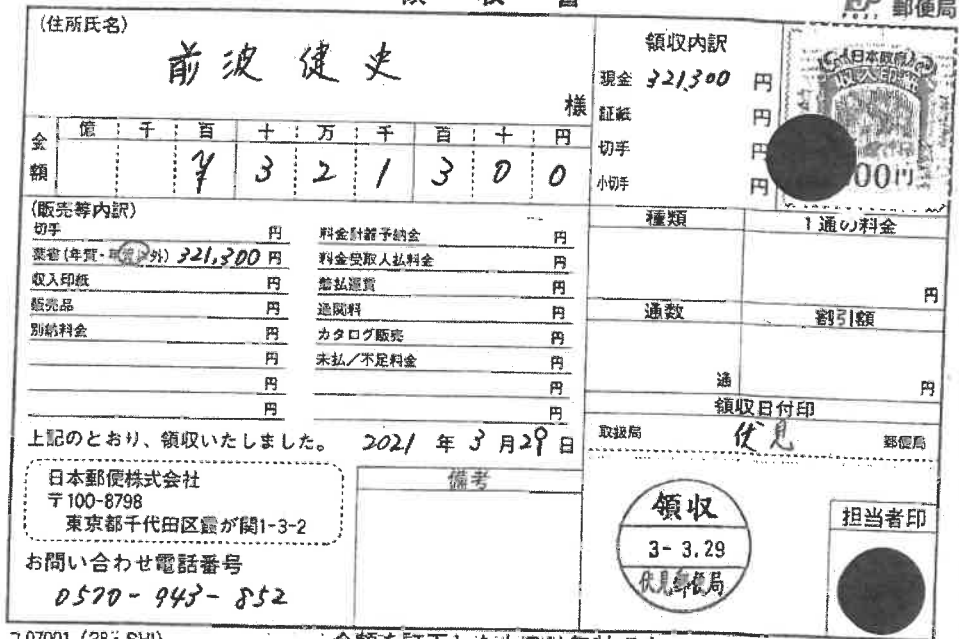 領収書
郵便局
(住所氏名)
前波 健史
様
金額
億 千 百 十 万 千 百 十 円
¥ 3 2 1 3 0 0
領収内訳
現金 321,300 円
証紙 円
切手 円
小切手 円
日本政府
収入印紙
00円
(販売等内訳)
切手 円
葉書(年賀・年賀以外) 321,300 円
収入印紙 円
販売品 円
別納料金 円
円
円
円
料金計器予納金 円
料金受取人払料金 円
着払運賃 円
通関料 円
カタログ販売 円
未払/不足料金 円
円
円
種類
1通の料金
円
通数
通
割引額
円
領収日付印
取扱局 伏見 郵便局
上記のとおり、領収いたしました。 2021 年 3 月 29 日
日本郵便株式会社
〒100-8798
東京都千代田区霞が関1-3-2
お問い合わせ電話番号
0570-943-852
備考
領収
3-3.29
伏見郵便局
担当者印